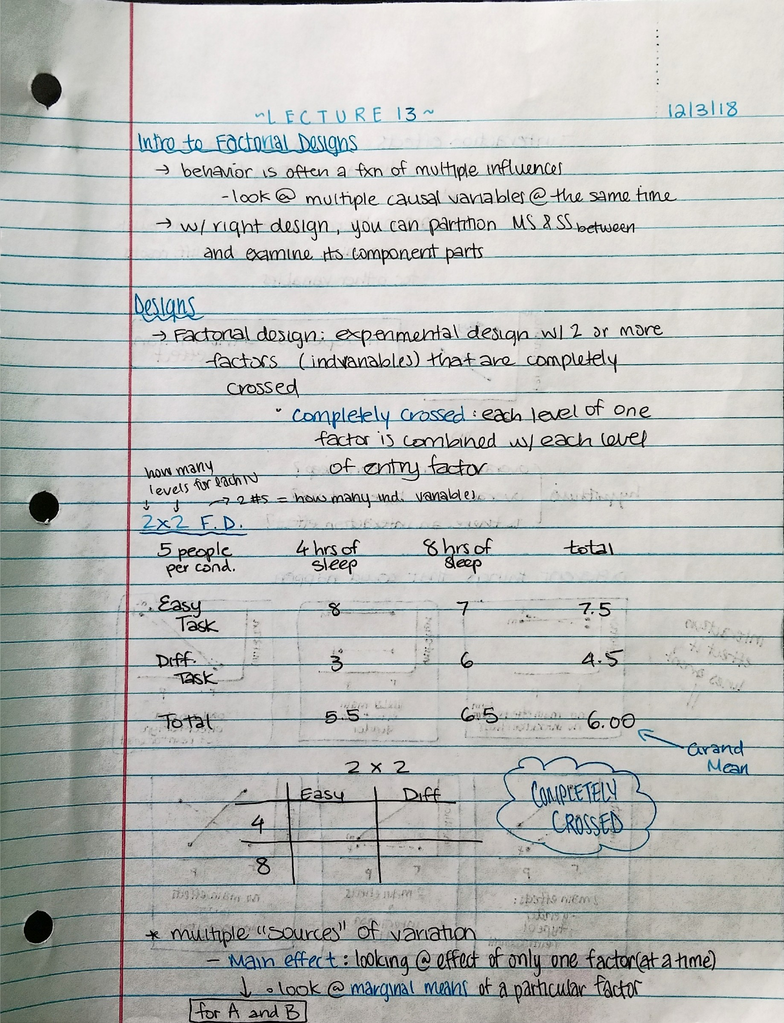 ~LECTURE 13~ 12/3/18
Intro to Factorial Designs
→ behavior is often a fxn of multiple influences
- look @ multiple causal variables @ the same time
→ w/ right design, you can partition MS & SS between
and examine its component parts
Designs
→ Factorial design: experimental design w/ 2 or more
factors (ind variables) that are completely
crossed
• completely crossed: each level of one
factor is combined w/ each level
of entry factor
how many
levels for each IV
→ 2 #s = how many ind. variables
2x2 F.D.
5 people per cond. 4 hrs of sleep 8 hrs of sleep total
Easy Task 8 7 7.5
Diff. Task 3 6 4.5
Total 5.5 6.5 6.00
Grand
Mean
2 x 2
Easy Diff
4
8
COMPLETELY
CROSSED
* multiple "sources" of variation
- Main effect: looking @ effect of only one factor (at a time)
↓ • look @ marginal means of a particular factor
for A and B